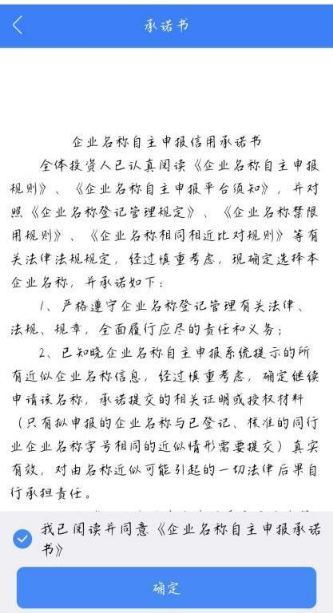 承诺书
企业名称自主申报信用承诺书
全体投资人已认真阅读《企业名称自主申报
规则》、《企业名称自主申报平台须知》，并对
照《企业名称登记管理规定》、《企业名称禁限
用规则》、《企业名称相同相近比对规则》等有
关法律法规规定，经过慎重考虑，现确定选择本
企业名称，并承诺如下：
1、严格遵守企业名称登记管理有关法律、
法规、规章，全面履行应尽的责任和义务；
2、已知晓企业名称自主申报系统提示的所
有近似企业名称信息，经过慎重考虑，确定继续
申请该名称，承诺提交的相关证明或授权材料
（只有拟申报的企业名称与已登记、核准的同行
业企业名称字号相同的近似情形需要提交）真实
有效，对由名称近似可能引起的一切法律后果自
行承担责任。
我已阅读并同意《企业名称自主申报承诺
书》
确定